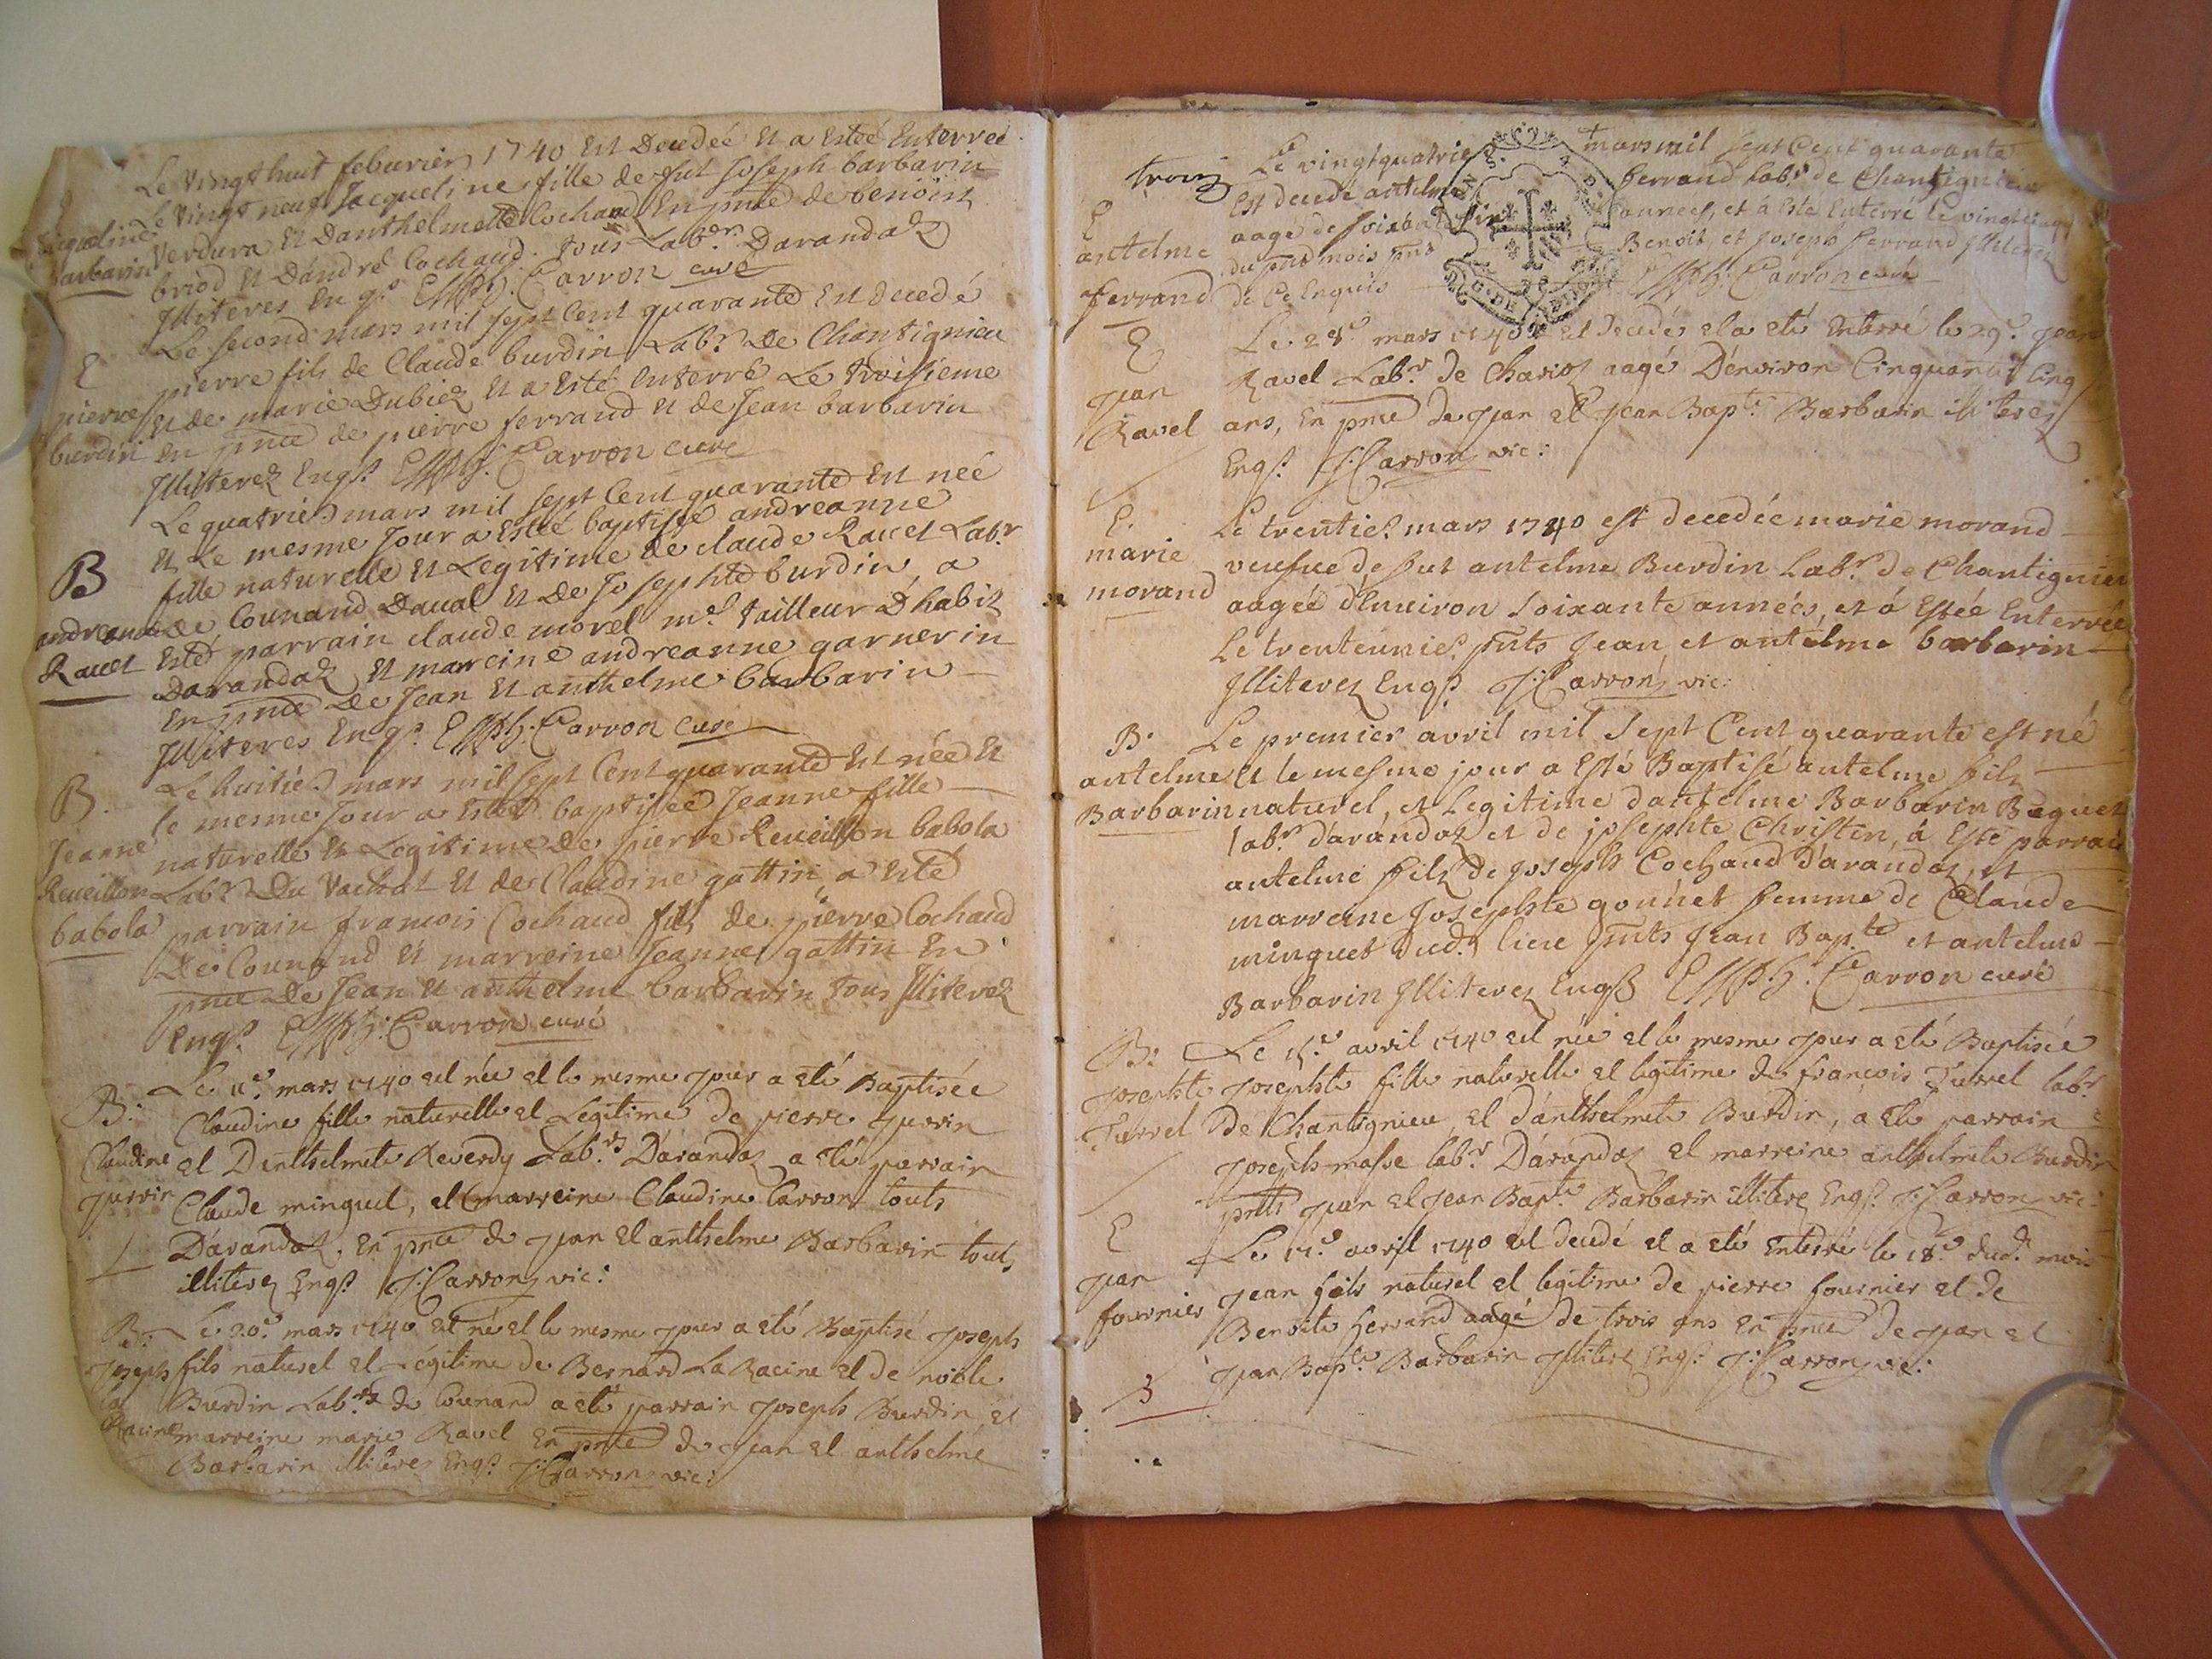 Le vingt huit feburier 1740 Est Decedée Et a Estéé Enterrée
Le vingt neuf Jacqueline fille de fut Joseph barbarin
Jacqueline
barbarin
Verdura Et Danthelmette Cochaud En pnce de benoist
briod Et D'andre Cochaud. tous Labrs Darandaz
Illiteres Enqs Carron curé
Le second mars mil sept Cent quarante Est decedé
E
pierre
burdin
pierre fils de Claude burdin Labr De Chantignieu
Et de marie Dubiez Et a Esté Enterré Le troisieme
En pnce de pierre ferrand Et de Jean barbarin
Illiterez Enqs Carron curé
Le quatrie mars mil sept Cent quarante Est neé
Et Le mesme Jour a Estéé baptisée andreanne
B
andreanne
Ravet
fille naturelle Et Legitime de claude Ravet Labr
de Counand Daval Et De Josephte burdin, a
Esté parrain claude morel me tailleur D'habis
Darandaz Et mareine andreanne garnerin
En pnce De Jean Et anthelme barbarin
Illiteres Enqs Carron curé
Le huitie mars mil sept Cent quarante Est née Et
B.
Jeanne
Reueillon
babola
le mesme Jour a Estéé baptisée Jeanne fille
naturelle Et Legitime De pierre Reueillon babola
Labr Du Vachat Et de Claudine gattin, a Esté
parrain francois Cochaud fils de pierre Cochaud
De Counand Et marreine Jeanne gattin En
pnce De Jean Et anthelme barbarin tous Illiterez
Enqs Carron curé
Le 11e mars 1740 est née et le mesme jour a eté Baptisée
B:
Claudine
jurrin
Claudine fille naturelle et Legitime de pierre jurrin
et D'enthelmete Reverdy Labrs D'arandaz a eté parrain
Claude minguet, et marreine Claudine Carron touts
D'arandaz. En pnce de jean et anthelme Barbarin touts
illiterez Enqs J: Carron vic:
Le 20e mars 1740 est né et le mesme jour a eté Baptisé joseph
B:
joseph
la
Racine
fils naturel et Légitime de Bernard La Racine et de
Burdin Labrs de Counand a eté parrain joseph Burdin, et
marreine marie Ravel En pnce de jean et anthelme
Barbarin illiterez Enqs J: Carron vic:
trois
Le vingtquatrie mars mil sept Cent quarante
E
antelme
ferrand
Est decedé antelme ferrand Labr de Chantignieu
aagé de soixante annees, et a este Enterré le vingtcinq
du pnt mois pnts Benoit, et Joseph ferrand Illiterez
de Ce Enquis Carron curé
E
jean
Ravel
Le 28e mars 1740 est decedé et a eté Enterré le 29e jean
Ravel Labr de Charioz aagé D'environ Cinquante Cinq
ans, En pnce de jean et jean Bapte Barbarin illiterez
Enqs J: Carron vic:
E.
marie
morand
Le trentie mars 1740 est decedée marie morand
veufue de fut antelme Burdin Labr de Chantignieu
aagée d'Enuiron soixante années, et á Estée Enterrée
Le trenteunie pnts Jean et antelme barbarin
Illiterez Enqs J: Carron vic:
B.
antelme
Barbarin
Le premier avril mil sept Cent quarante est né
et le mesme jour a Esté Baptisé antelme fils
naturel, et Legitime dantelme Barbarin Baguet
labr darandaz et de josephte Christin, á Esté parrain
antelme fils de Joseph Cochaud d'arandaz, et
marreine Josephte gonnet femme de Claude
minguet dud. lieu pnts Jean Bapte et antelme
Barbarin Illiterez Enqs Carron curé
B:
josephte
Turrel
Le avril 1740 est née et le mesme jour a eté Baptisée
josephte fille naturelle et legitime de françois Turrel labr
de Chantignieu, et d'anthelmete Burdin, a eté parrain
joseph masse labr D'arandaz et marreine anthelmete Burdin
pnts jean et jean Bapte Barbarin illiterez Enqs J: Carron vic:
E
jean
fournier
Le 17e avril 1740 est decedé et a eté Enterré le 18e dud. mois
jean fils naturel et legitime de pierre fournier et de
Benoite ferrand aagé de trois ans En pnce de jean et
jean Bapte Barbarin Illiterez Enqs J: Carron vic:
3